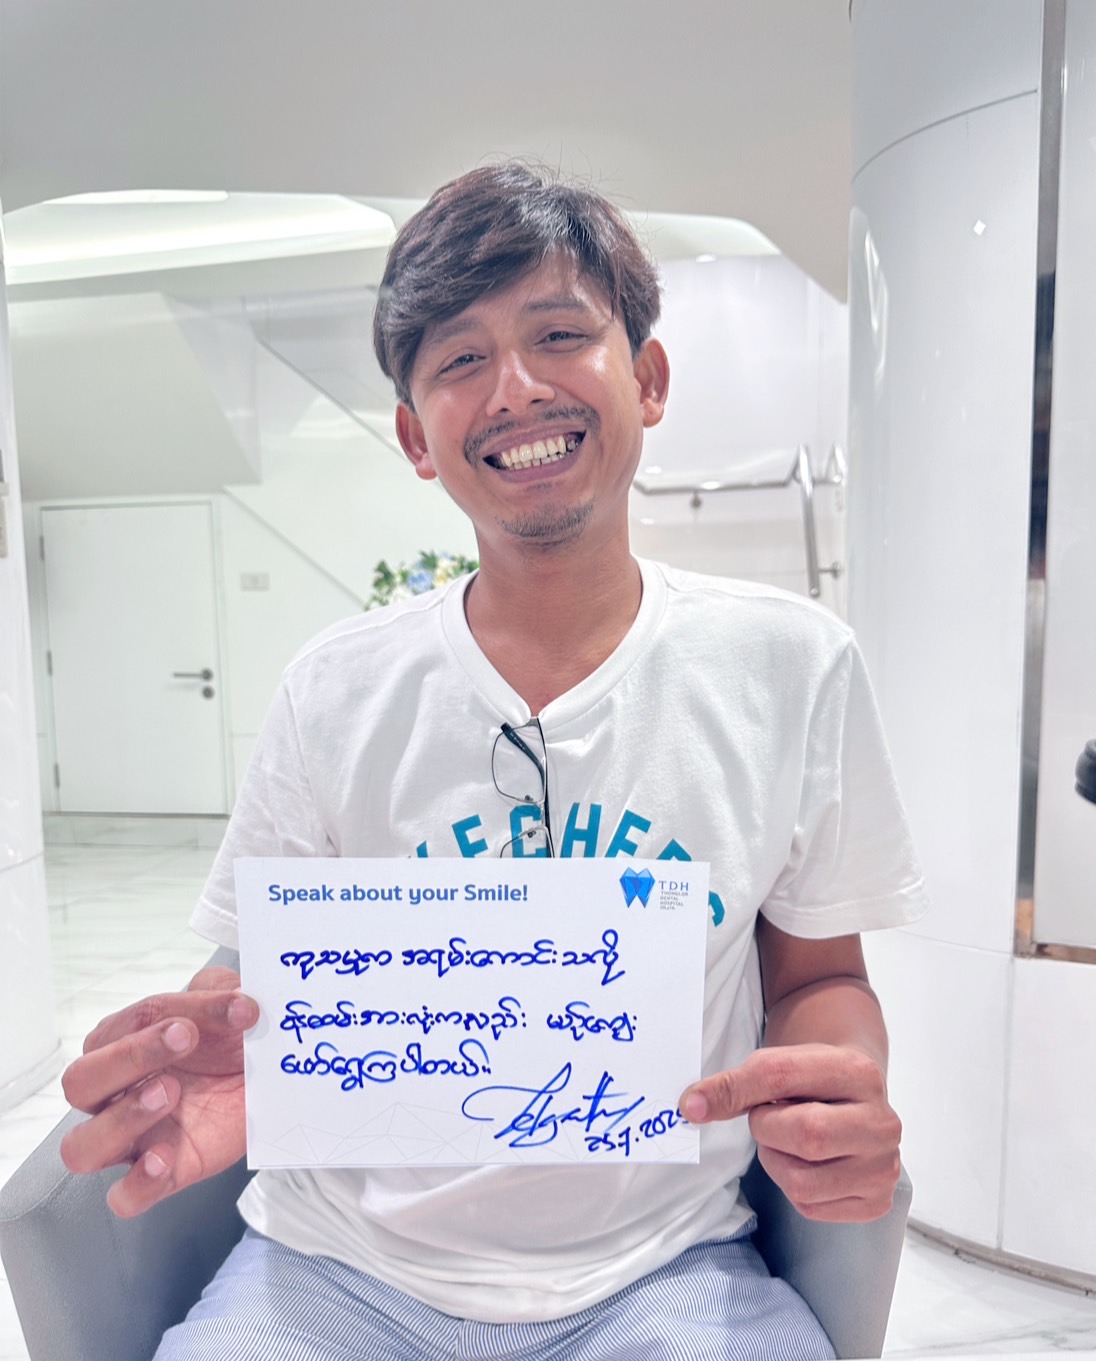 Speak about your Smile!
TDH
THONGLOR
DENTAL
HOSPITAL
ကုသမှုက အရမ်းကောင်းသလို
ဝန်ထမ်းအားလုံးကလည်း
ဖော်ရွေကြပါတယ်။
25.7.202